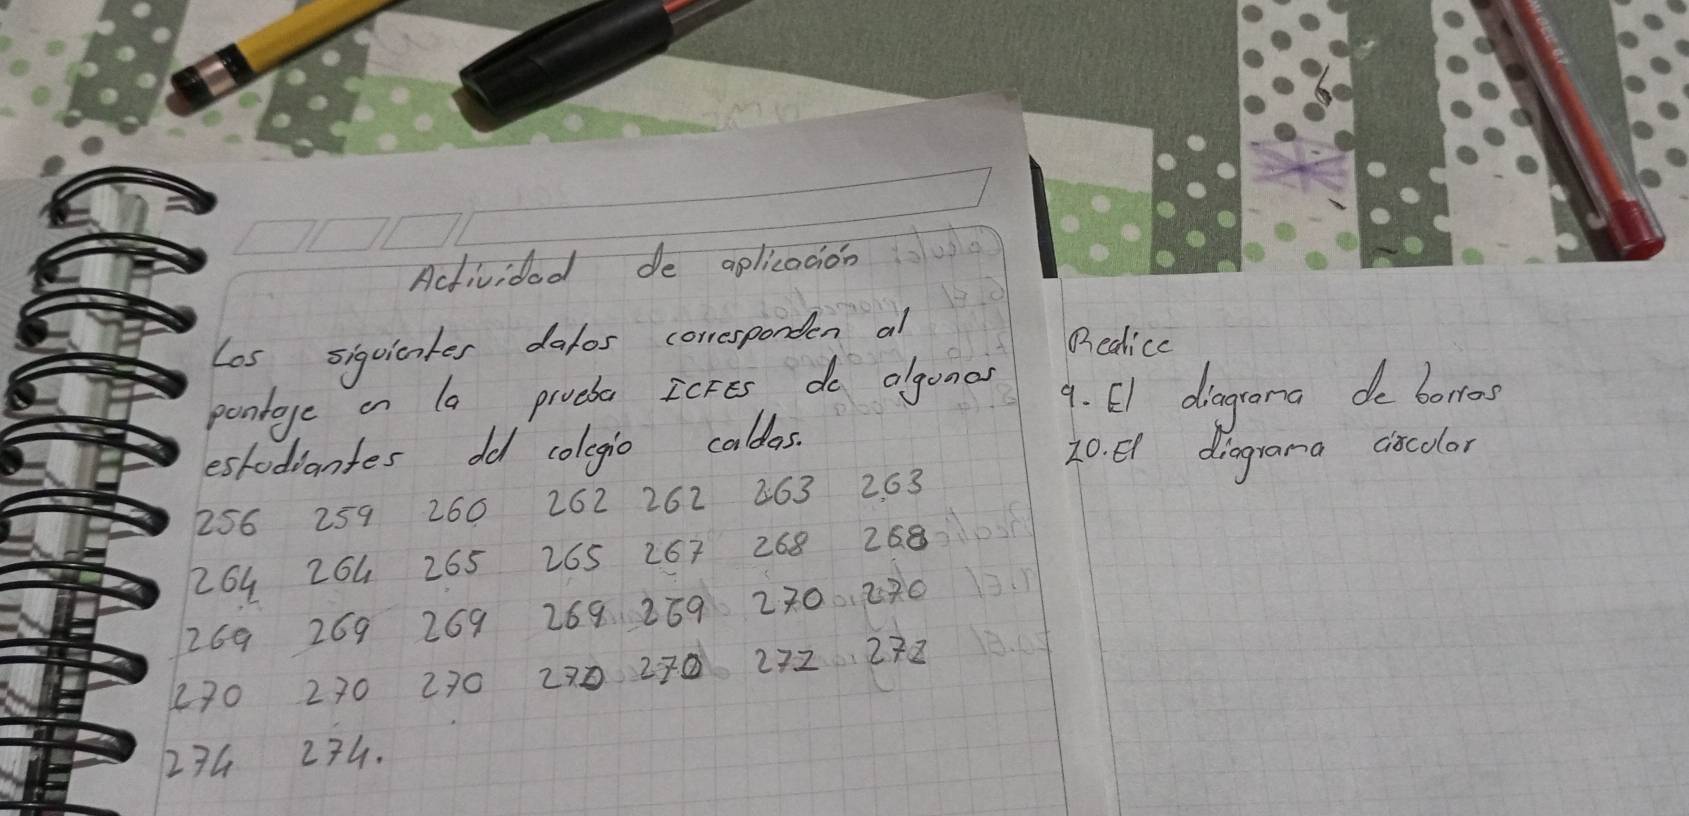 Actividad de aplicación
Los siguientes datos corresponden al
puntaje en la prueba ICFES de algunos
estudiantes del colegio caldas.
256 259 260 262 262 263 263
264 264 265 265 267 268 268
269 269 269 269 269 270 270
270 270 270 270 270 272 272
274 274.
Realice
9. El diagrama de barras
10. El diagrama circular